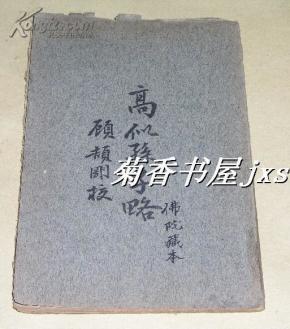 高似孫子略
顧頡剛校
佛院藏本
菊香书屋jxs